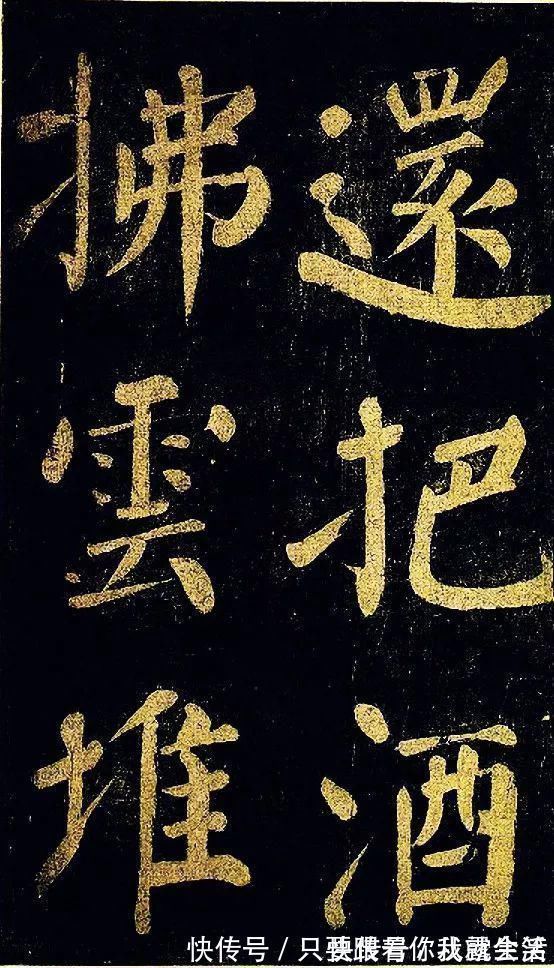 還把酒
拂雲堆
快传号／只要
你我
生活